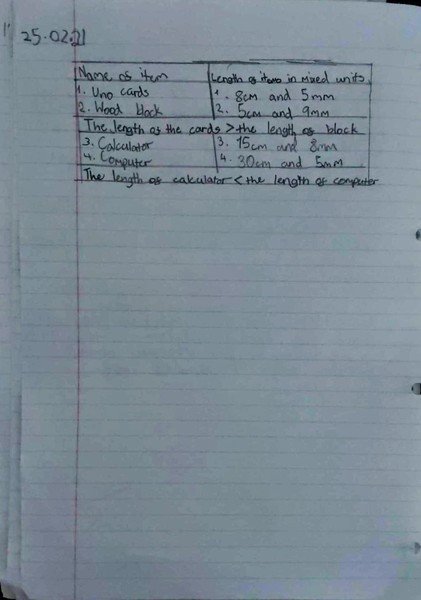 25.02.21
Name of item Length of items in mixed units.
1. Uno cards 1. 8cm and 5mm
2. Wood block 2. 5cm and 9mm
The length of the cards > the length of block
3. Calculator 3. 15cm and 8mm
4. Computer 4. 30cm and 5mm
The length of calculator < the length of computer